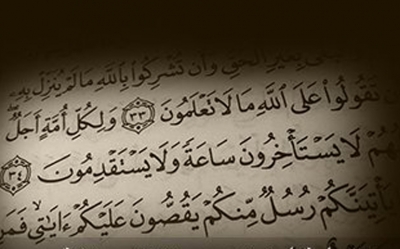 بِغَيْرِ ٱلْحَقِّ وَأَن تُشْرِكُوا۟ بِٱللَّهِ مَا لَمْ يُنَزِّلْ بِهِۦ
تَقُولُوا۟ عَلَى ٱللَّهِ مَا لَا تَعْلَمُونَ ٣٣ وَلِكُلِّ أُمَّةٍ أَجَلٌ ۖ
لَا يَسْتَأْخِرُونَ سَاعَةً وَلَا يَسْتَقْدِمُونَ ٣٤
يَأْتِيَنَّكُمْ رُسُلٌ مِّنكُمْ يَقُصُّونَ عَلَيْكُمْ ءَايَٰتِى ۙ فَمَنِ